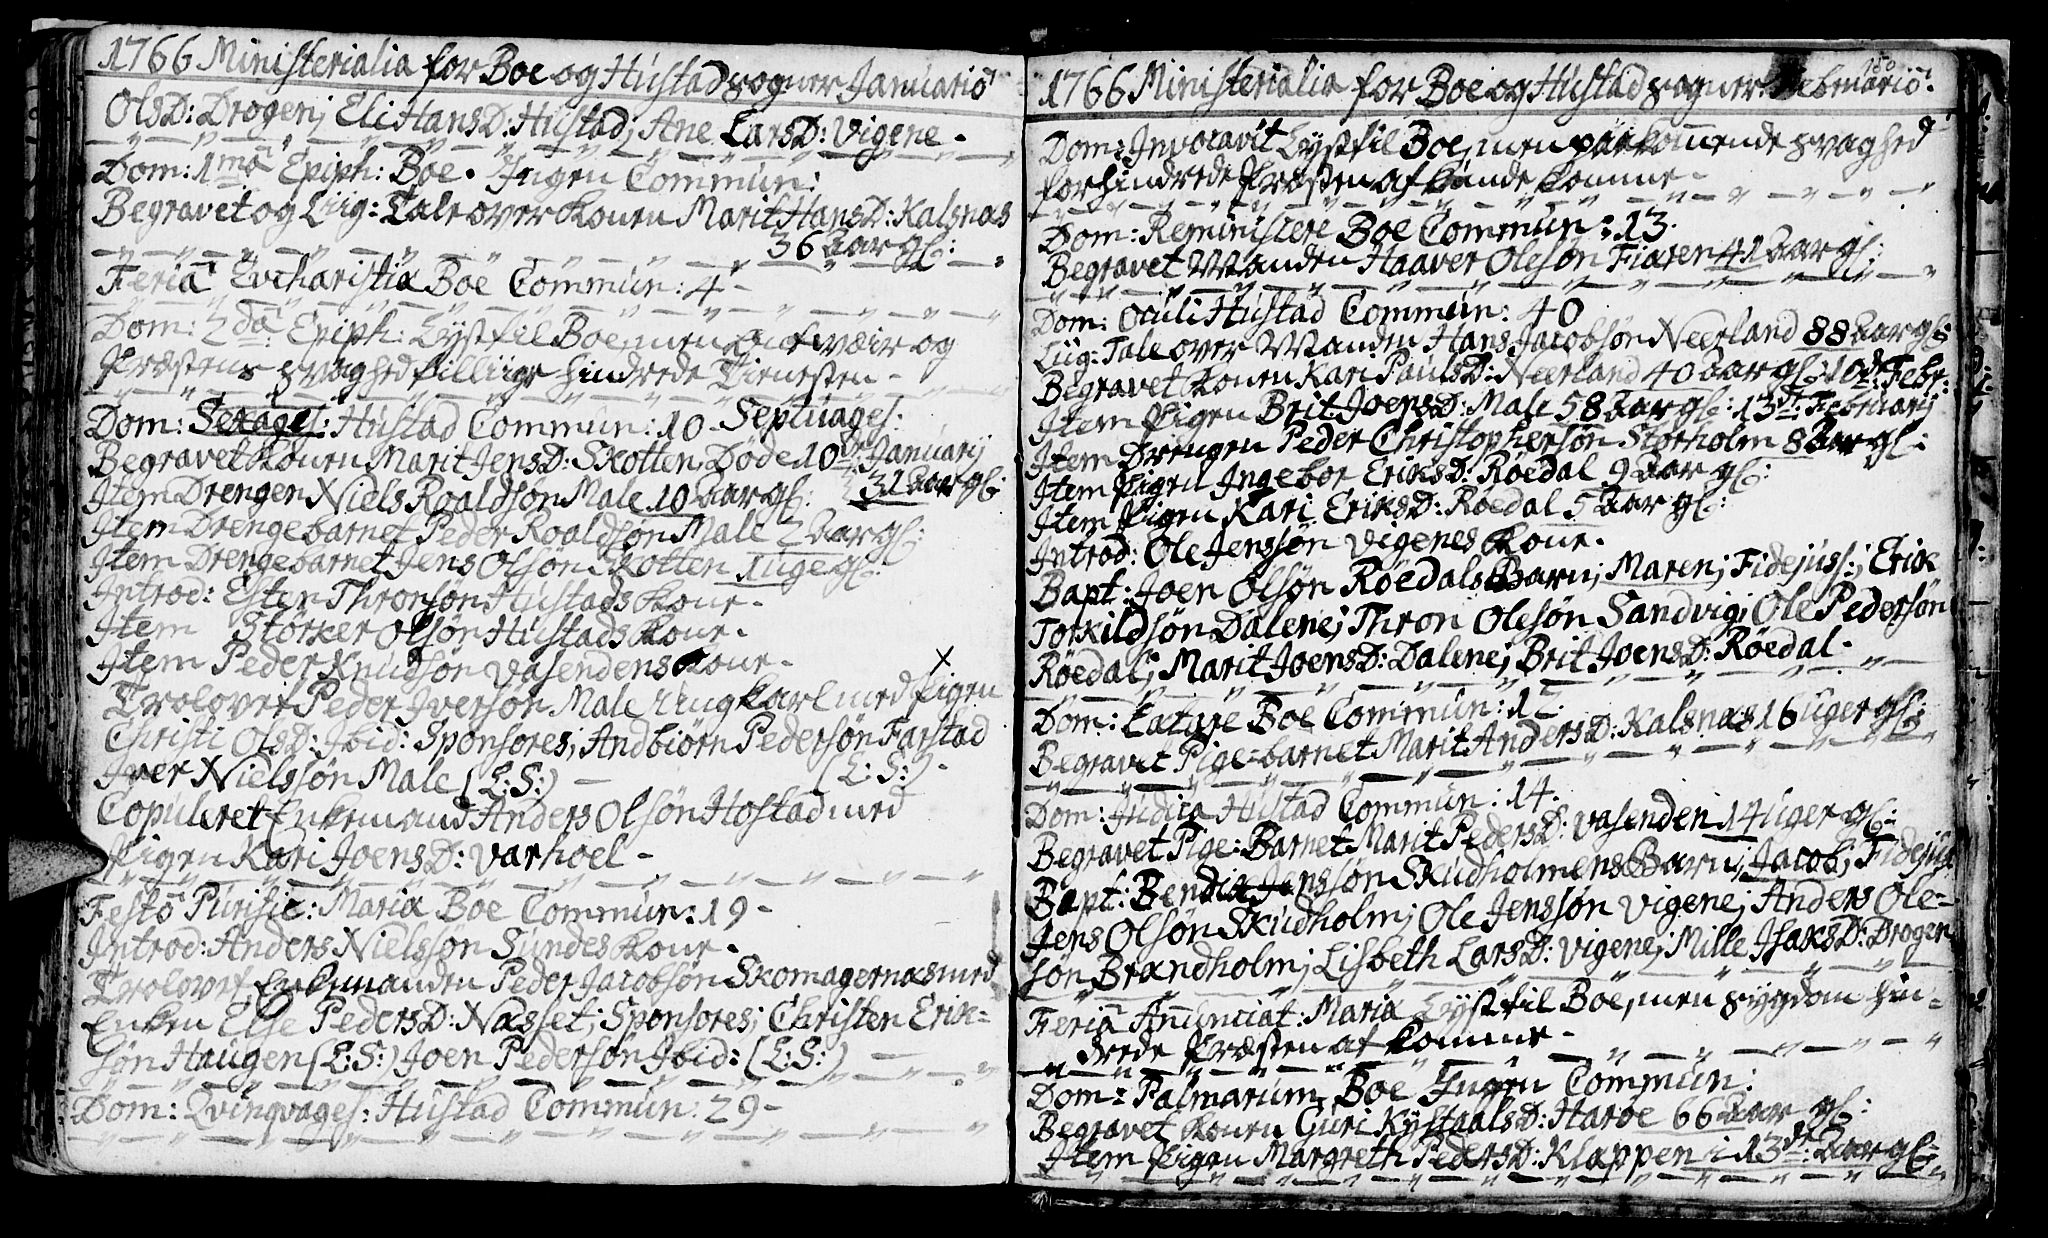 1766 Ministerialia for Boe og Hustad sogner Januario
OlsD: Drogen; Eli HansD: Hustad; Ane LarsD: Vigene -
Dom: 1ma Epiph: Boe. Ingen Commun:
Begravet og Liig=Tale over Konen Marit HansD: Kalsnas
36 Aar gl:
Feria Evcharistia Boe Commun: 4 -
Dom: 2da Epiph: Lyst til Boe, men veir og
Præstens svaghed tilliige hindrede Tienesten -
Dom: Sexages: Hustad Commun: 10 - Septuages:
Begravet Konen Marit JensD: Skotten, Døde 10de Januarij
Item Drengen Niels Roaldsøn Male 10 Aar gl: 31 Aar gl:
Item Drengebarnet Peder Roaldsøn Male 2 Aar gl:
Item Drengebarnet Jens Olsøn Skotten 1 uge gl:
Introd: Esten Thronsøn Hustads Kone -
Item Storker Olsøn Hustads Kone -
Item Peder Knudsøn Vasendens Kone -
Trolovet Peder Iversøn Male Ungkarl med Pigen
Christi OlsD: Ibid: Sponsores; Andbiørn Pedersøn Farstad
Iver Nielssøn Male (L:S:) - (L:S:) -
Copuleret Enkemand Anders Olsøn Hostad med
Pigen Kari JoensD: Varhoel -
Festo Purific: Maria Boe Commun: 19 -
Introd: Anders Nielssøn Sundes Kone -
Trolovet Enkemanden Peder Jacobsøn Skomagernas med
Enken Else PedersD: Nasset; Sponsores; Christen Erik=
søn Haugen (L:S:) Joen Pedersøn Ibid: (L:S:) -
Dom: Qvinqvages: Hustad Commun: 29 -
150
1766 Ministerialia for Boe og Hustad sogner Februario.
Dom: Invocavit Lyst til Boe, men paakomende svaghed
forhindrede Præsten at kunde komme -
Dom: Reminiscere Boe Commun: 13.
Begravet Manden Haaver Olesøn Fiaren 41 Aar gl:
Dom: Oculi Hustad Commun: 40
Liig: Tale over Manden Hans Jacobsøn Neerland 88 Aar gl:
Begravet Konen Kari PaulsD: Neerland 40 Aar gl: 10de Febr:
Item Pigen Brit JoensD: Male 58 Aar gl: 13de Februarij
Item Drengen Peder Christophersøn Storholm 8 Aar gl:
Item Pigen Ingebor EriksD: Røedal 9 Aar gl:
Item Pigen Kari EriksD: Røedal 5 Aar gl:
Introd: Ole Jenssøn Vigenes Kone.
Bapt: Joen Olsøn Røedals Barn; Maren; Fidejuss:; Erik
Torkildsøn Dalene; Thron Olesøn Sandvig; Ole Pedersøn
Røedal; Marit JoensD: Dalene; Brit JoensD: Røedal -
Dom: Latare Boe Commun: 12.
Begravet Pige=barnet Marit AndersD: Kalsnas 16 Uger gl:
Dom: Judica Hustad Commun: 14.
Begravet Pige=Barnet Marit PedersD: Vasenden 14 Uger gl:
Bapt: Bendix Jenssøn Skudholmens Barn; Jacob; Fidejus:
Jens Olsøn Skudholm; Ole Jenssøn Vigene; Anders Ole=
søn Brandholm; Lisbeth LarsD: Vigene; Mille IsaksD: Drogen
Feria Annunciat: Maria Lyst til Boe, men sygdom hin=
drede Præsten at komme -
Dom: Palmarum Boe Ingen Commun:
Begravet Konen Guri KystaalsD: Haroe 66 Aar gl:
Item Pigen Margreth PedersD: Klappen i 13de Aar gl: